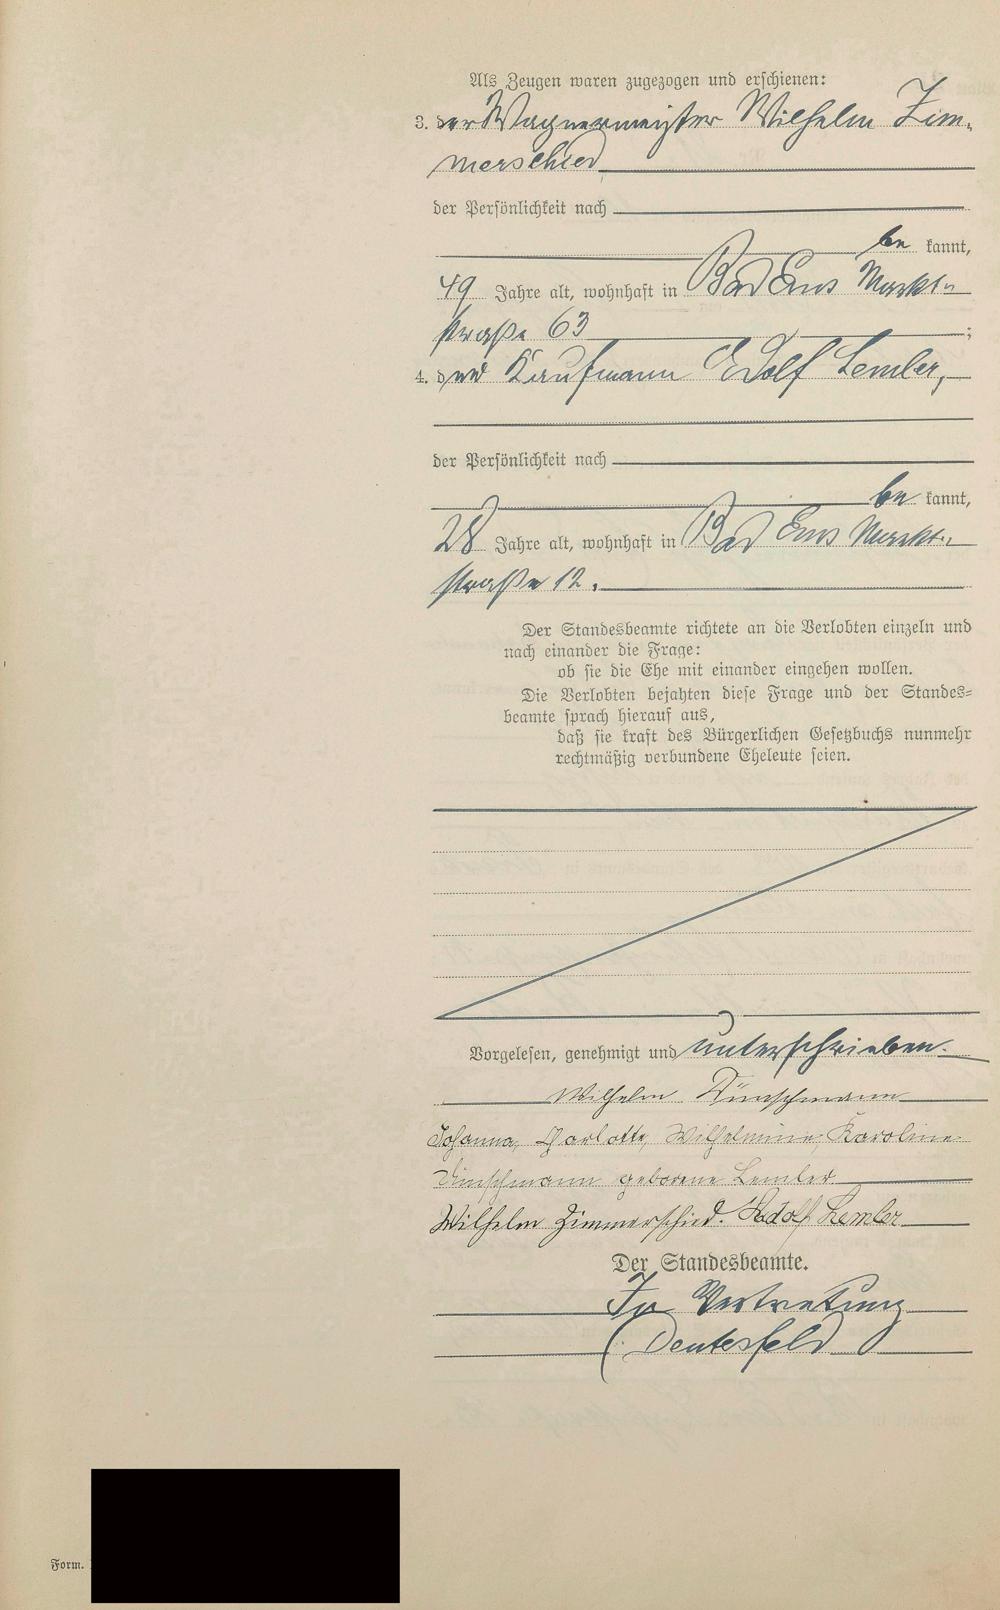 Als Zeugen waren zugezogen und erschienen:
3. der Wagnermeister Wilhelm Zim-
merschied
der Persönlichkeit nach
be kannt,
49 Jahre alt, wohnhaft in Bad Ems Markt-
straße 63 ;
4. der Kaufmann Adolf Lemler,
der Persönlichkeit nach
be kannt,
28 Jahre alt, wohnhaft in Bad Ems Markt-
straße 12.
Der Standesbeamte richtete an die Verlobten einzeln und
nach einander die Frage:
ob sie die Ehe mit einander eingehen wollen.
Die Verlobten bejahten diese Frage und der Standes-
beamte sprach hierauf aus,
daß sie kraft des Bürgerlichen Gesetzbuchs nunmehr
rechtmäßig verbundene Eheleute seien.
Vorgelesen, genehmigt und unterschrieben.
Wilhelm Dünschmann
Johanna, Charlotte, Wilhelmine, Karoline
Dünschmann geborene Lemler
Wilhelm Zimmerschied. Adolf Lemler
Der Standesbeamte.
In Vertretung
Deutesfeld
Form.